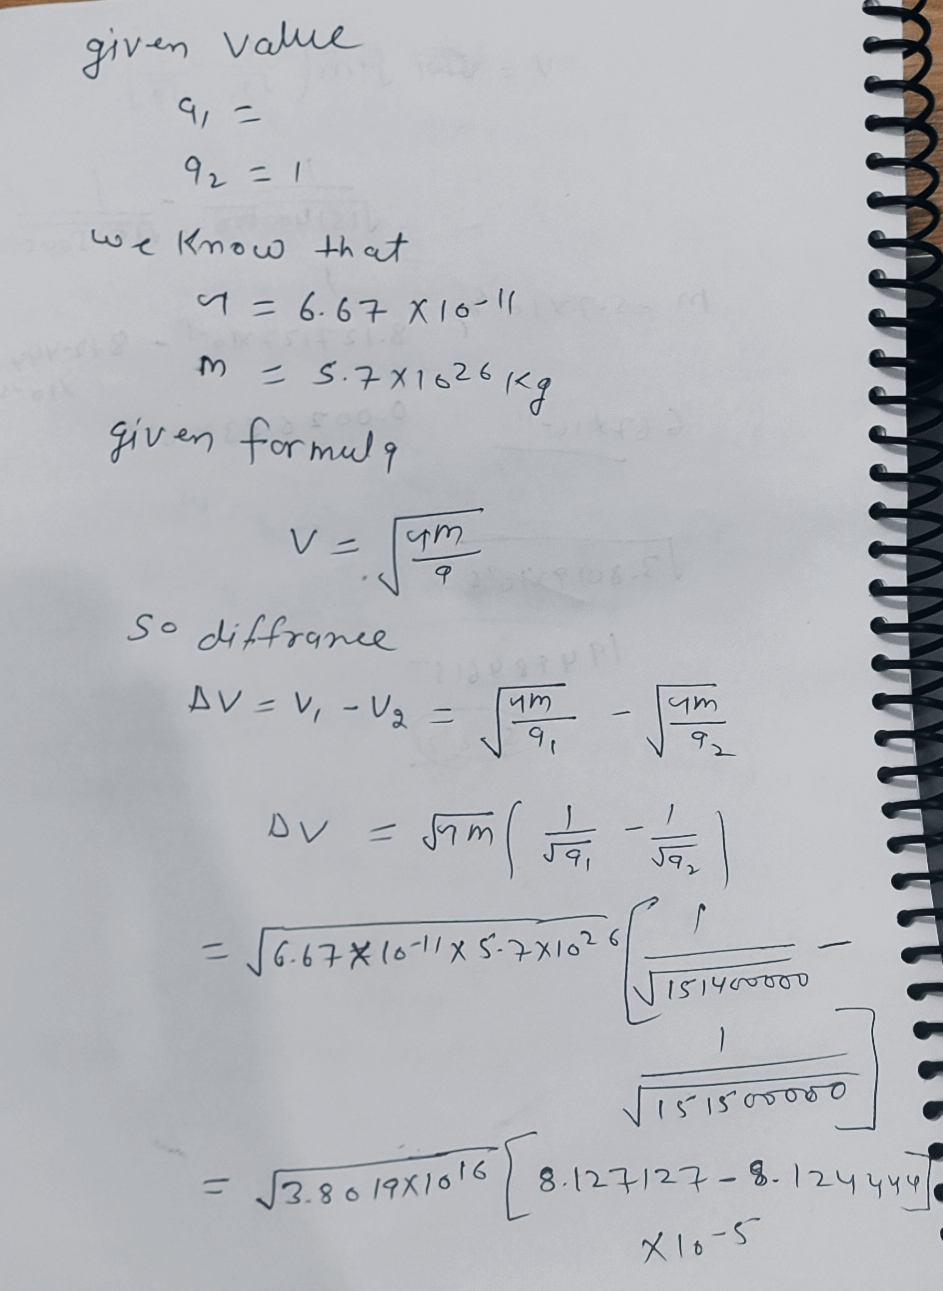 given value
a₁ =
a₂ = 1
we know that
G = 6.67 × 10⁻¹¹
m = 5.7 × 10²⁶ kg
given formula
V = √(Gm/a)
so diffrance
ΔV = V₁ - V₂ = √(Gm/a₁) - √(Gm/a₂)
ΔV = √Gm (1/√a₁ - 1/√a₂)
= √(6.67 × 10⁻¹¹ × 5.7 × 10²⁶) [1/√151400000 -
1/√151500000]
= √(3.8019 × 10¹⁶) [8.127127 - 8.124444]
× 10⁻⁵